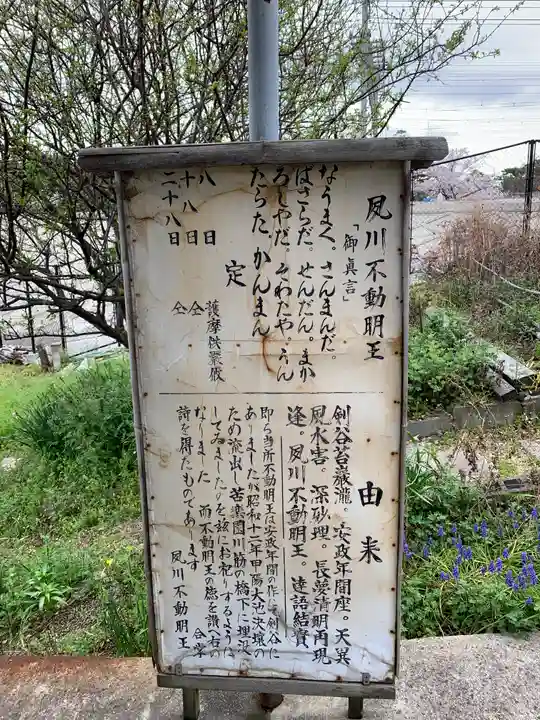 夙川不動明王
「御真言」
なうまく。さんまんだ。
ばさらだ。せんだん。まか
ろしやだ。そわたや。うん
たらた かんまん
定
八日 護摩供厳修
十八日 仝
二十八日 仝
由来
剣谷苔巌瀧。安政年間座。天異
風水害。深砂理。長夢清明再現
逢。夙川不動明王。達語結實
即ち当所不動明王は安政年間の作で剣谷に
ありましたが昭和十二年甲陽大池決壊の
ため流出し苦楽園川筋の橋下に埋没
してゐましたのを茲にお祈りするように
なりました 而不動明王の徳を讃へ右の
詩を得たものであります 合掌
夙川不動明王